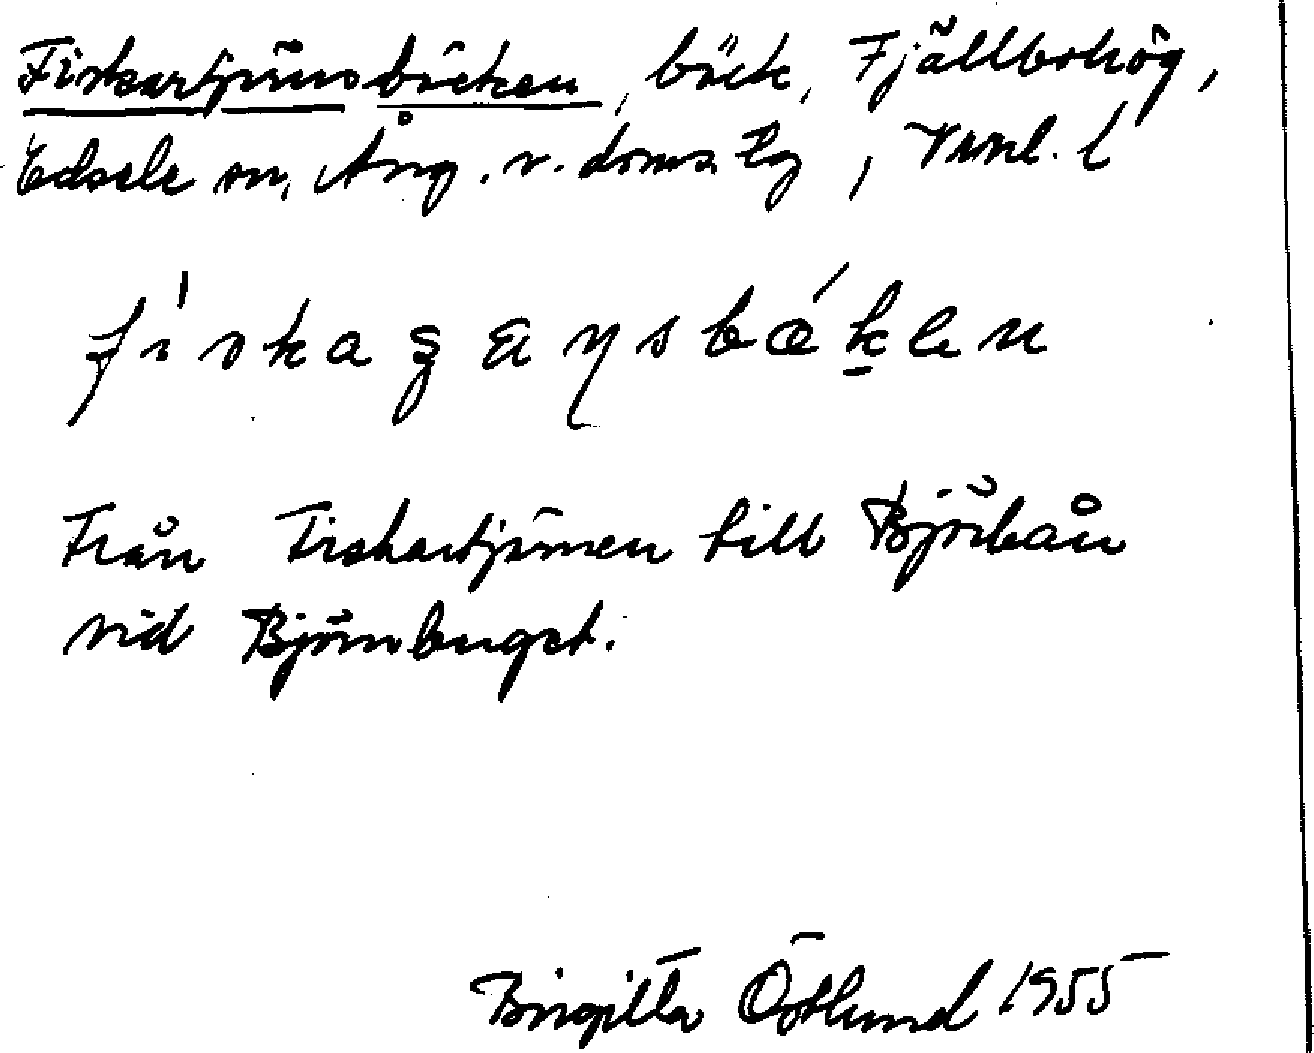 Fiskartjärnsbäcken, bäck, Fjällbohög,
Edsele sn, Ång. v. doms. tg, Vrnl. l
fiskaʂɛŋsbækken
Från Fiskartjärnen till Björbån
vid Björnberget.
Birgitta Östlund 1955